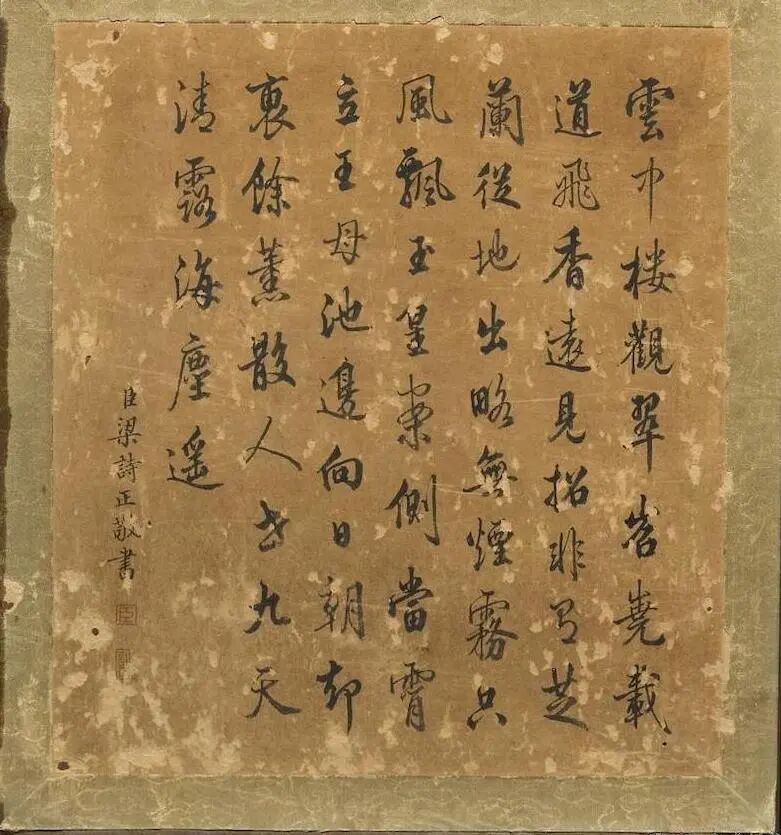 雲中楼觀翠岧嶤載
道飛香遠見招非有芝
蘭從地出略無煙霧只
風飄玉皇案側當霄
立王母池邊向日朝却
餘薰散人世九天
清露海塵遥
臣梁詩正敬書